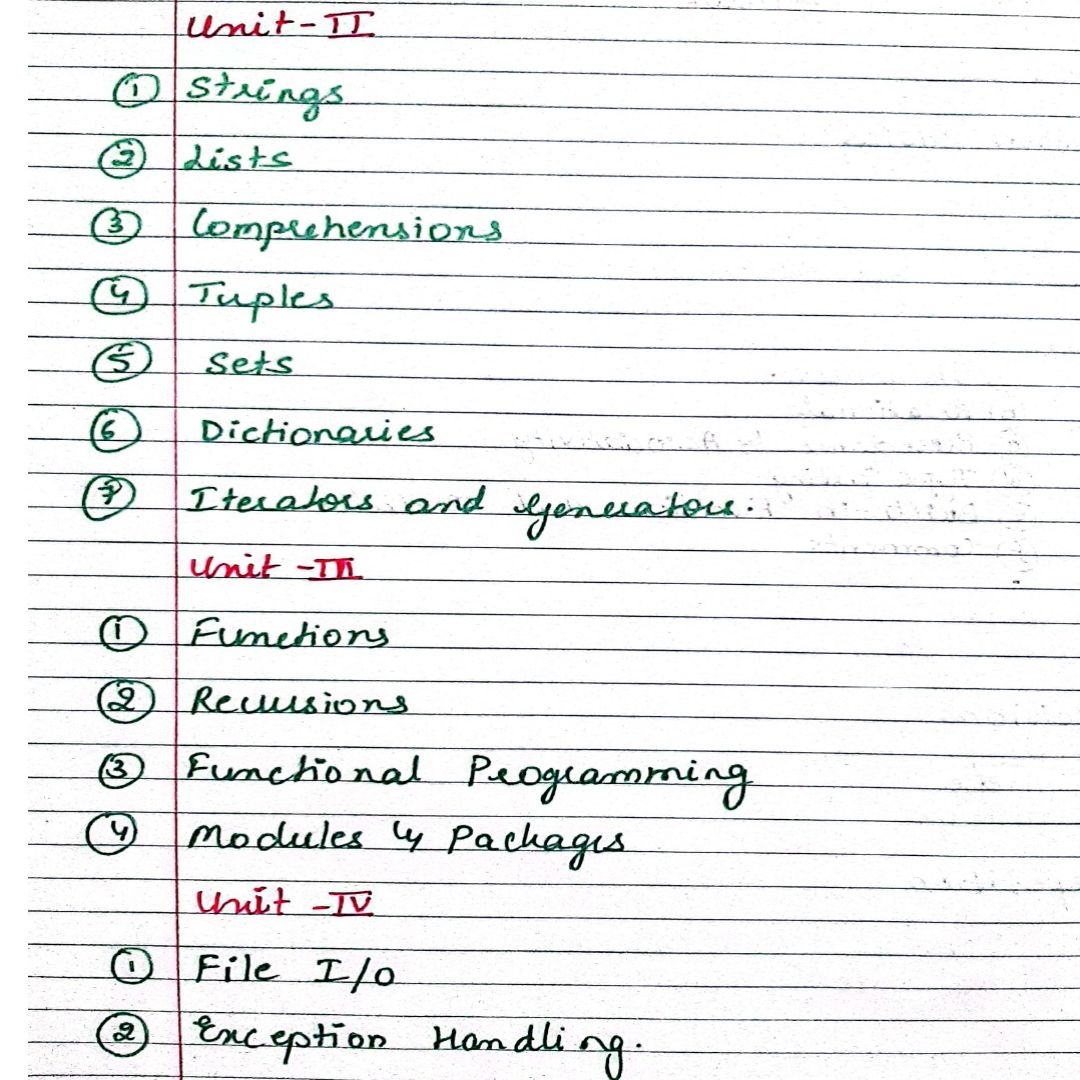 Unit-II
① Strings
② Lists
③ Comprehensions
④ Tuples
⑤ Sets
⑥ Dictionaries
⑦ Iterators and Generators.
Unit -III
① Functions
② Recursions
③ Functional Programming
④ Modules & Packages
Unit -IV
① File I/O
② Exception Handling.